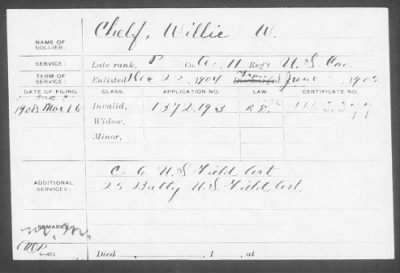 NAME OF SOLDIER: Chelf, Willie W.
SERVICE: Late rank, P Co. C, 11 Reg't U.S. Cav.
TERM OF SERVICE: Enlisted Nov 22, 1904 June 190
DATE OF FILING. CLASS. APPLICATION NO. CERTIFICATE NO.
1908 Mar 16 Invalid, 1372,193
Widow,
Minor,
ADDITIONAL SERVICES: C 6 U.S. Field Art.
25 Batty U.S. Field Art.
REMARKS:
Died , 1 , at